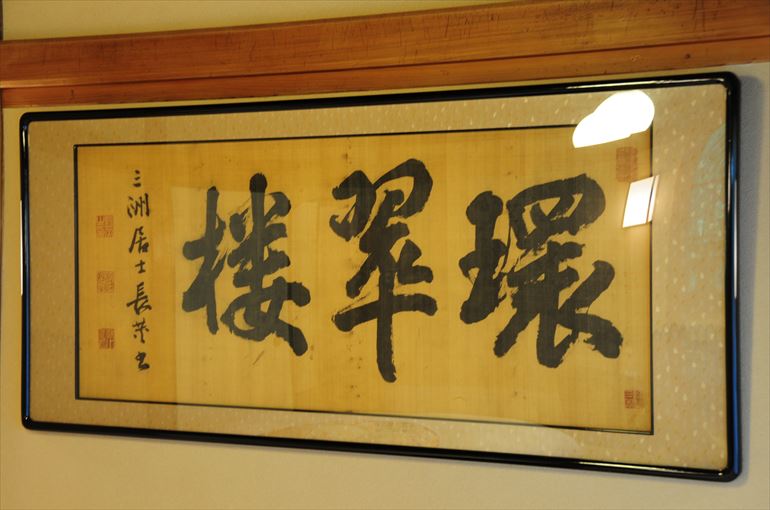 環翠楼
三洲居士長炗書